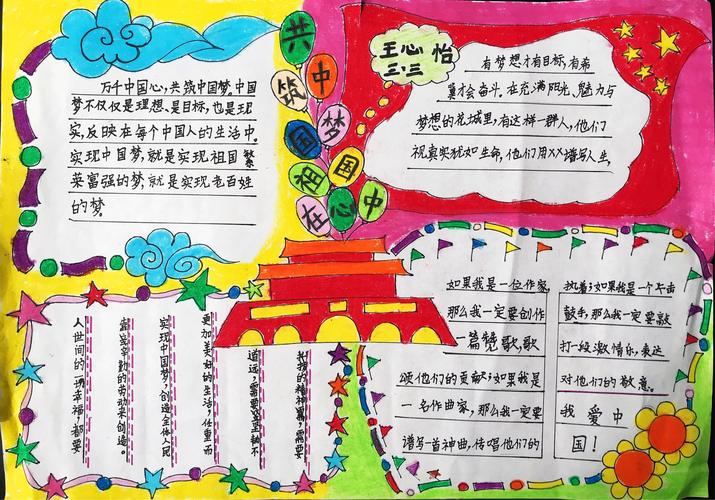 共
筑
中
国
梦
祖
国
在
心
中
王心怡
三.三
万千中国心,共筑中国梦.中国
梦不仅仅是理想、是目标,也是现
实,反映在每个中国人的生活中.
实现中国梦,就是实现祖国繁
荣富强的梦;就是实现老百姓
的梦。
有梦想才有目标,有希
冀才会奋斗.在充满阳光、魅力与
梦想的花城里,有这样一群人,他们
视真实犹如生命,他们用XX谱写人生,
人世间的一切幸福,都要
靠辛勤的劳动来创造。
实现中国梦,创造全体人民
更加美好的生活,任重而
道远,需要
的精神翼,需要
如果我是一位作家,
那么我一定要创作
一篇赞歌,歌
颂他们的贡献;如果我是
一名作曲家,那么我一定要
谱写一首神曲,传唱他们的
执着;如果我是一个
鼓手,那么我一定要敲
打一段激情乐,表达
对他们的敬意。
我爱中
国!